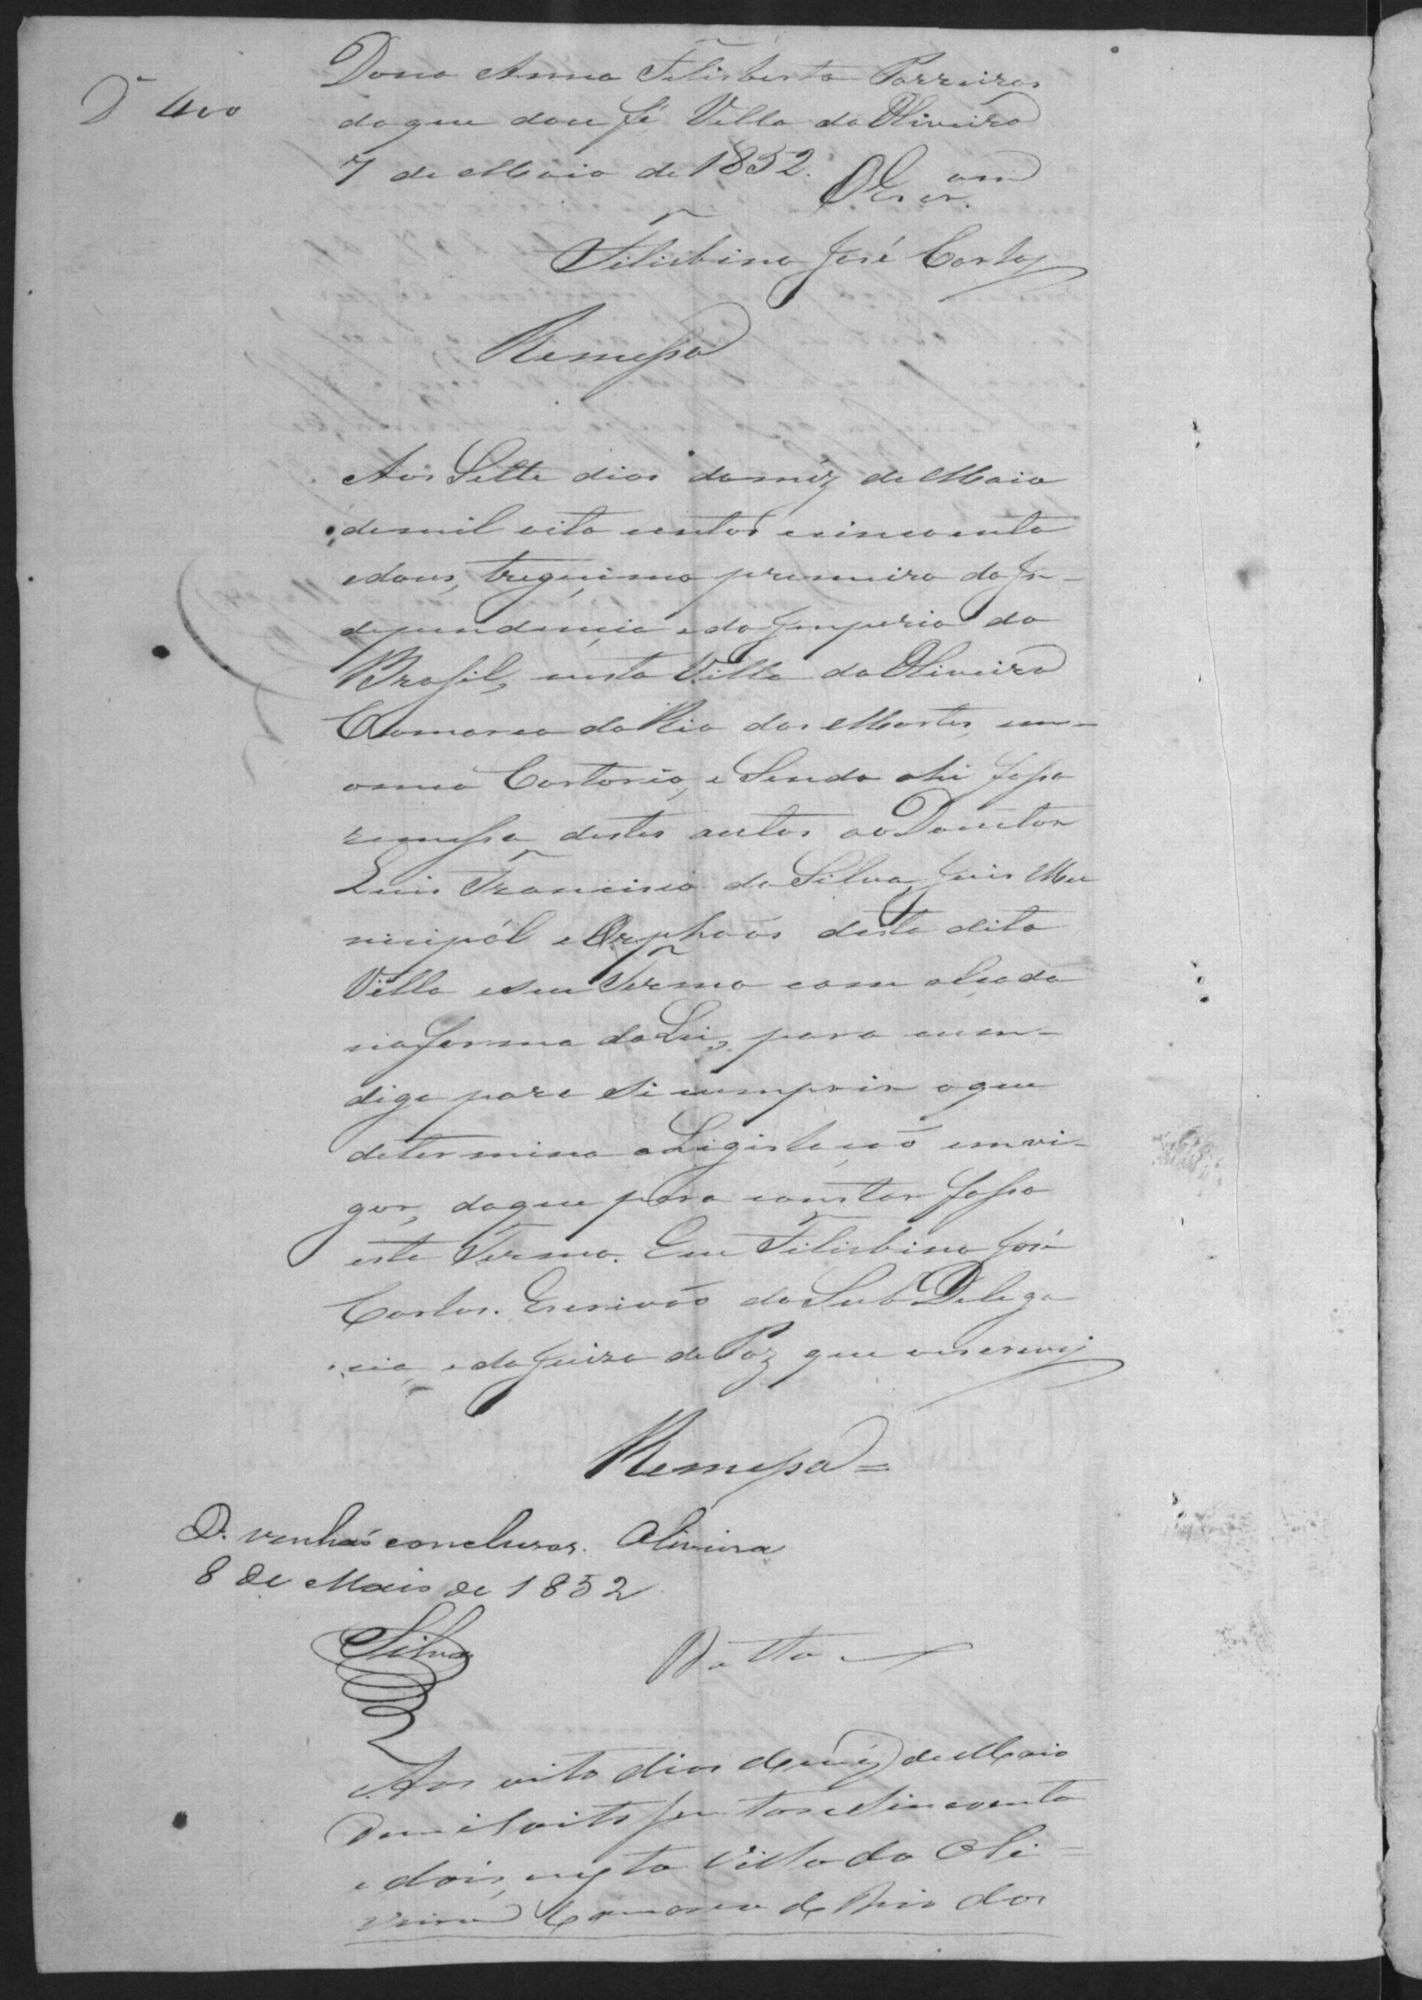 Dona Anna Felisberta Parreiras
D. 400
do que dou fé Villa da Oliveira
7 de Maio de 1852. O Escr.am
Felisbino José Carlos
Remessa
Aos Sette dias do mêz de Maio
de mil oito centos e cincoenta
e dous, tregesimo premeiro da In-
dependencia e do Imperio do
Brasil, nesta Villa da Oliveira
Comarca do Rio das Mortes, em-
o meo Cartorio, e Sendo ahi fasso
remessa destes autos ao Douctor
Luis Francisco da Silva, Juis Mu
nicipál e Orphaõs desta dita
Villa e seu Termo com alçada
na forma da Lei, para cum-
digo para se cumprir o que
determina a Legislação em vi-
gor, do que para constar fasso
este Termo. Eu Felisbino José
Carlos. Escrivão da Sub Delega
cia, e do Juizo de Paz que o escrevy
Remessa =
D. venhaõ conclusos. Oliveira
8 de Maio de 1852
Silva
Datta
Aos oito dias do mêz de Maio
de mil oito sentos e sincoenta
e dois, nesta Villa da Oli-
veira Comarca do Rio das